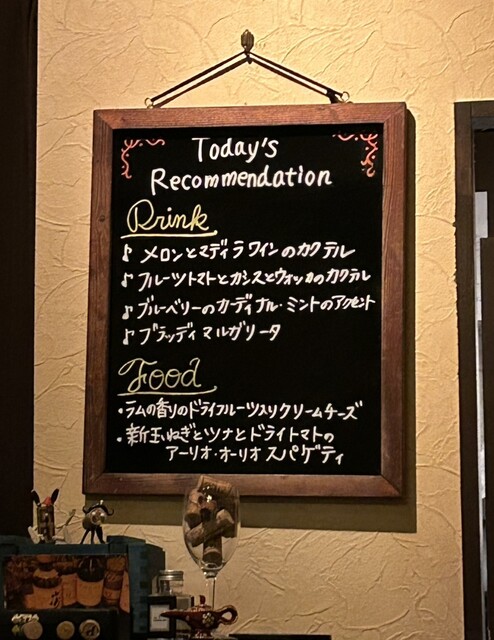 Today's
Recommendation
Drink
♪ メロンとマディラワインのカクテル
♪ フルーツトマトとカシスとウォッカのカクテル
♪ ブルーベリーのカーディナル・ミントのアクセント
♪ ブラッディマルガリータ
Food
・ラムの香りのドライフルーツ入りクリームチーズ
・新玉ねぎとツナとドライトマトの
アーリオ・オーリオ スパゲティ